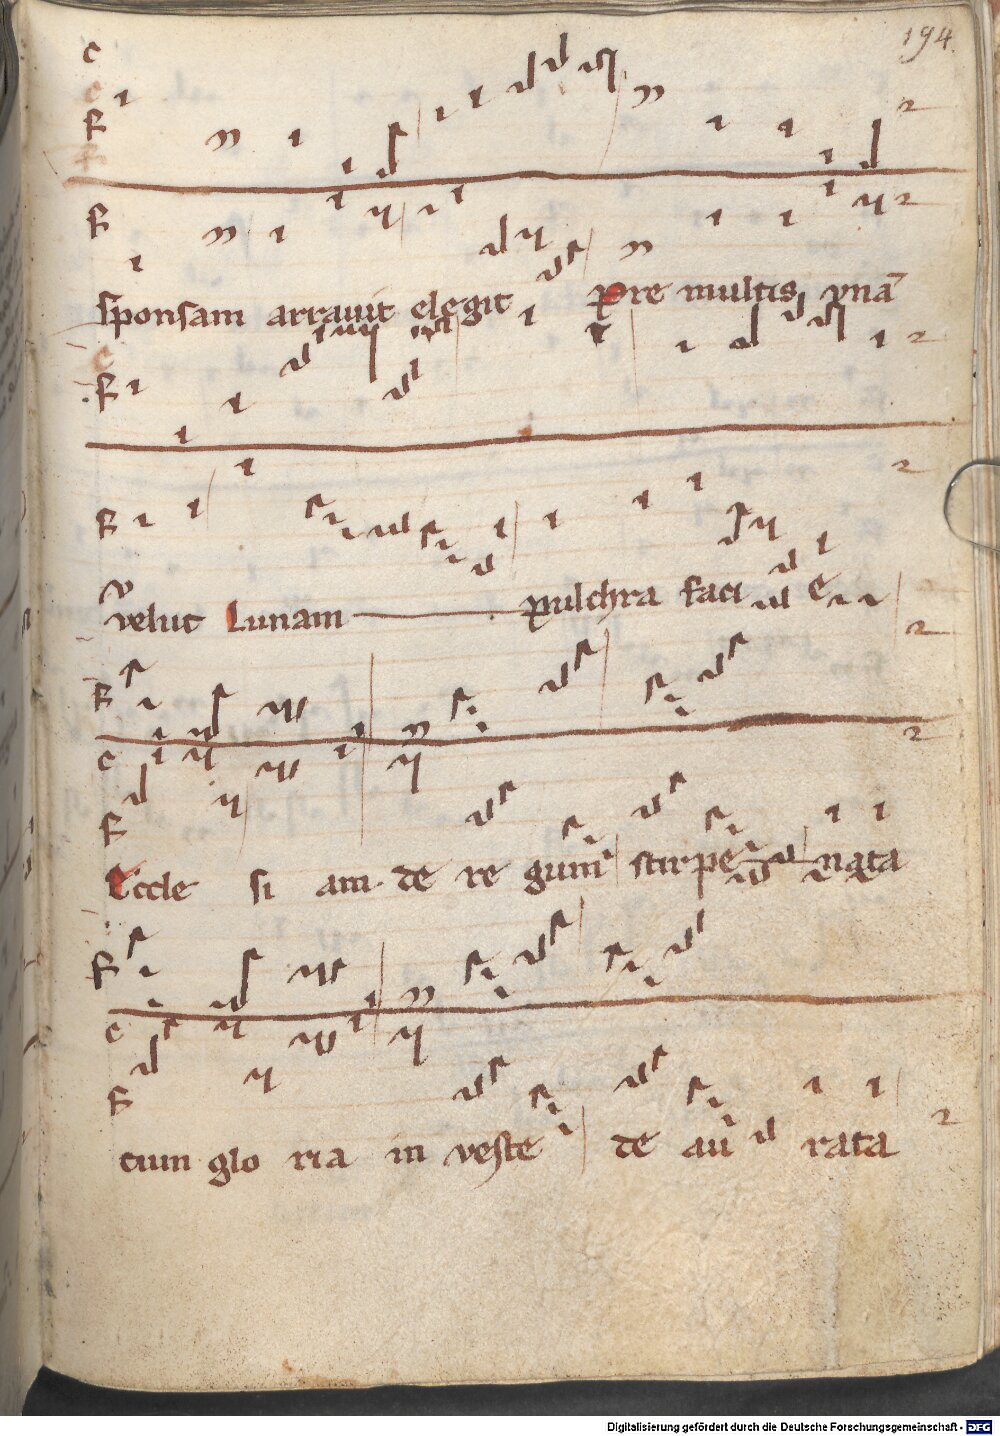 194.
sponsam arrauit elegit pre multis vnā
velut Lunam pulchra faci e
Eccle si am de re gum stirpe nata
cum glo ria in veste de au rata
Digitalisierung gefördert durch die Deutsche Forschungsgemeinschaft - DFG